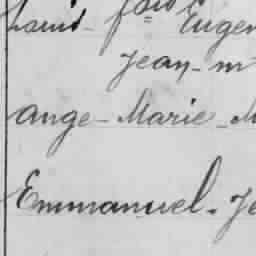 Louis - Eugen
Jean - m
ange - Marie - M
Emmanuel - Je